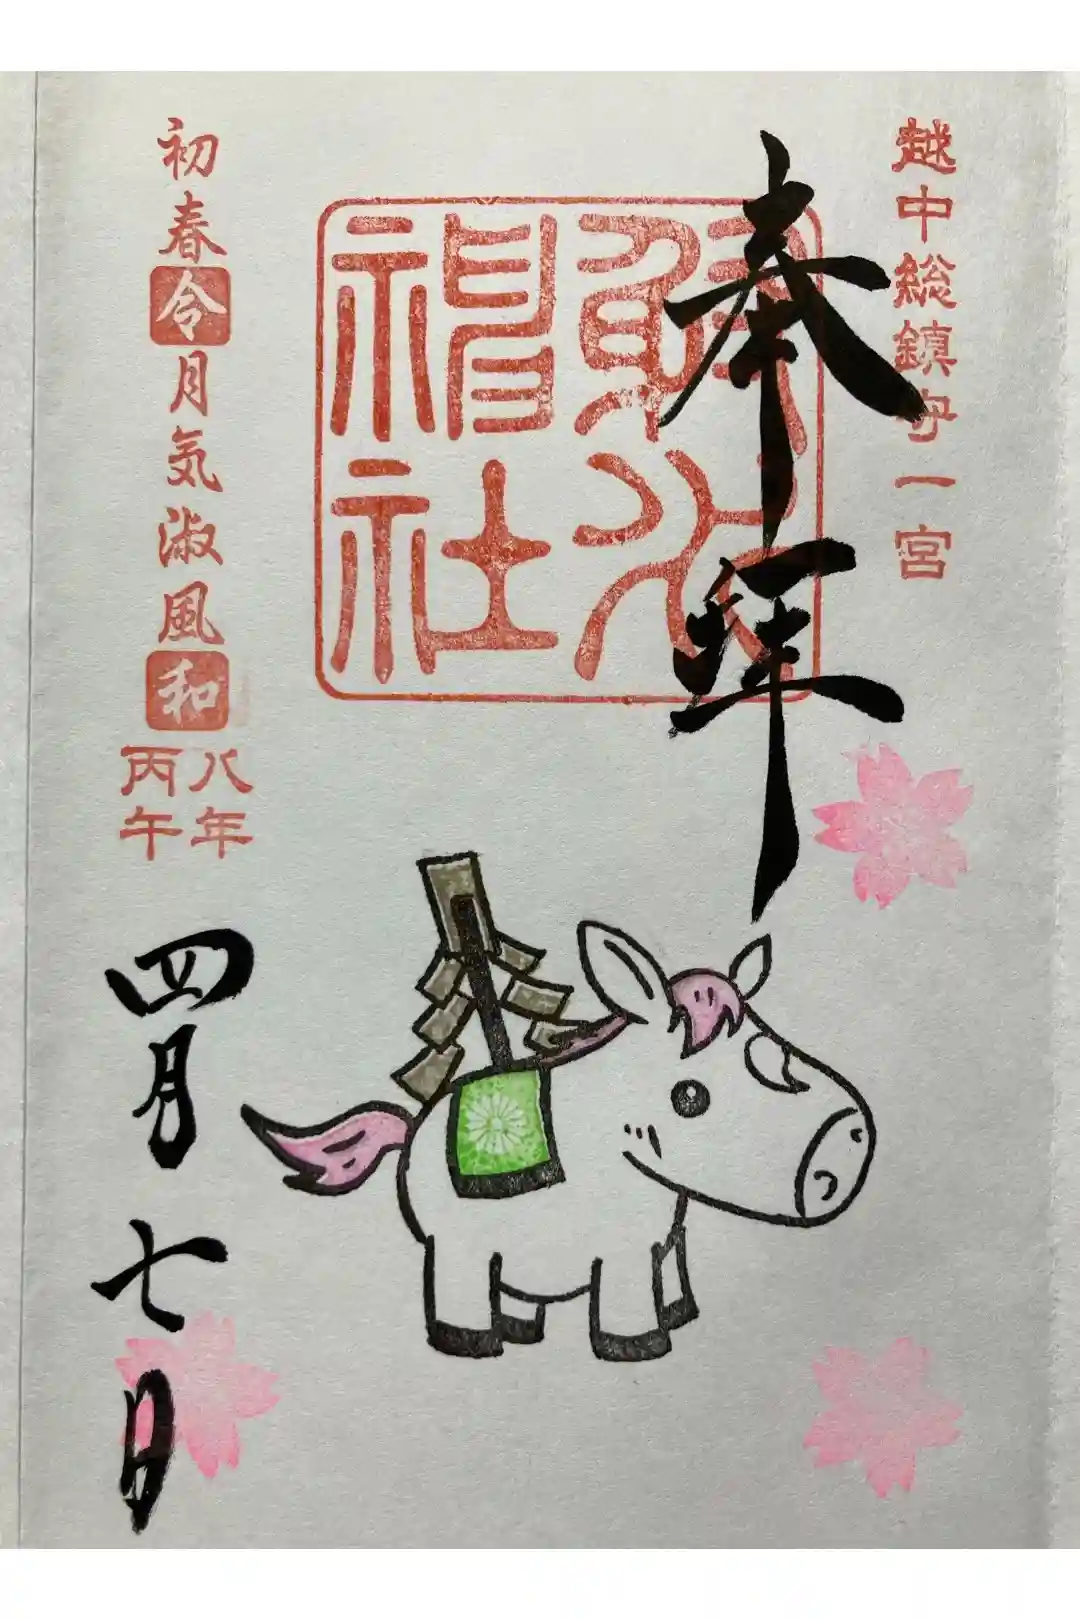 越中総鎮守一宮
奉拝
射水
神社
初春令月気淑風和
八年
丙午
四月七日